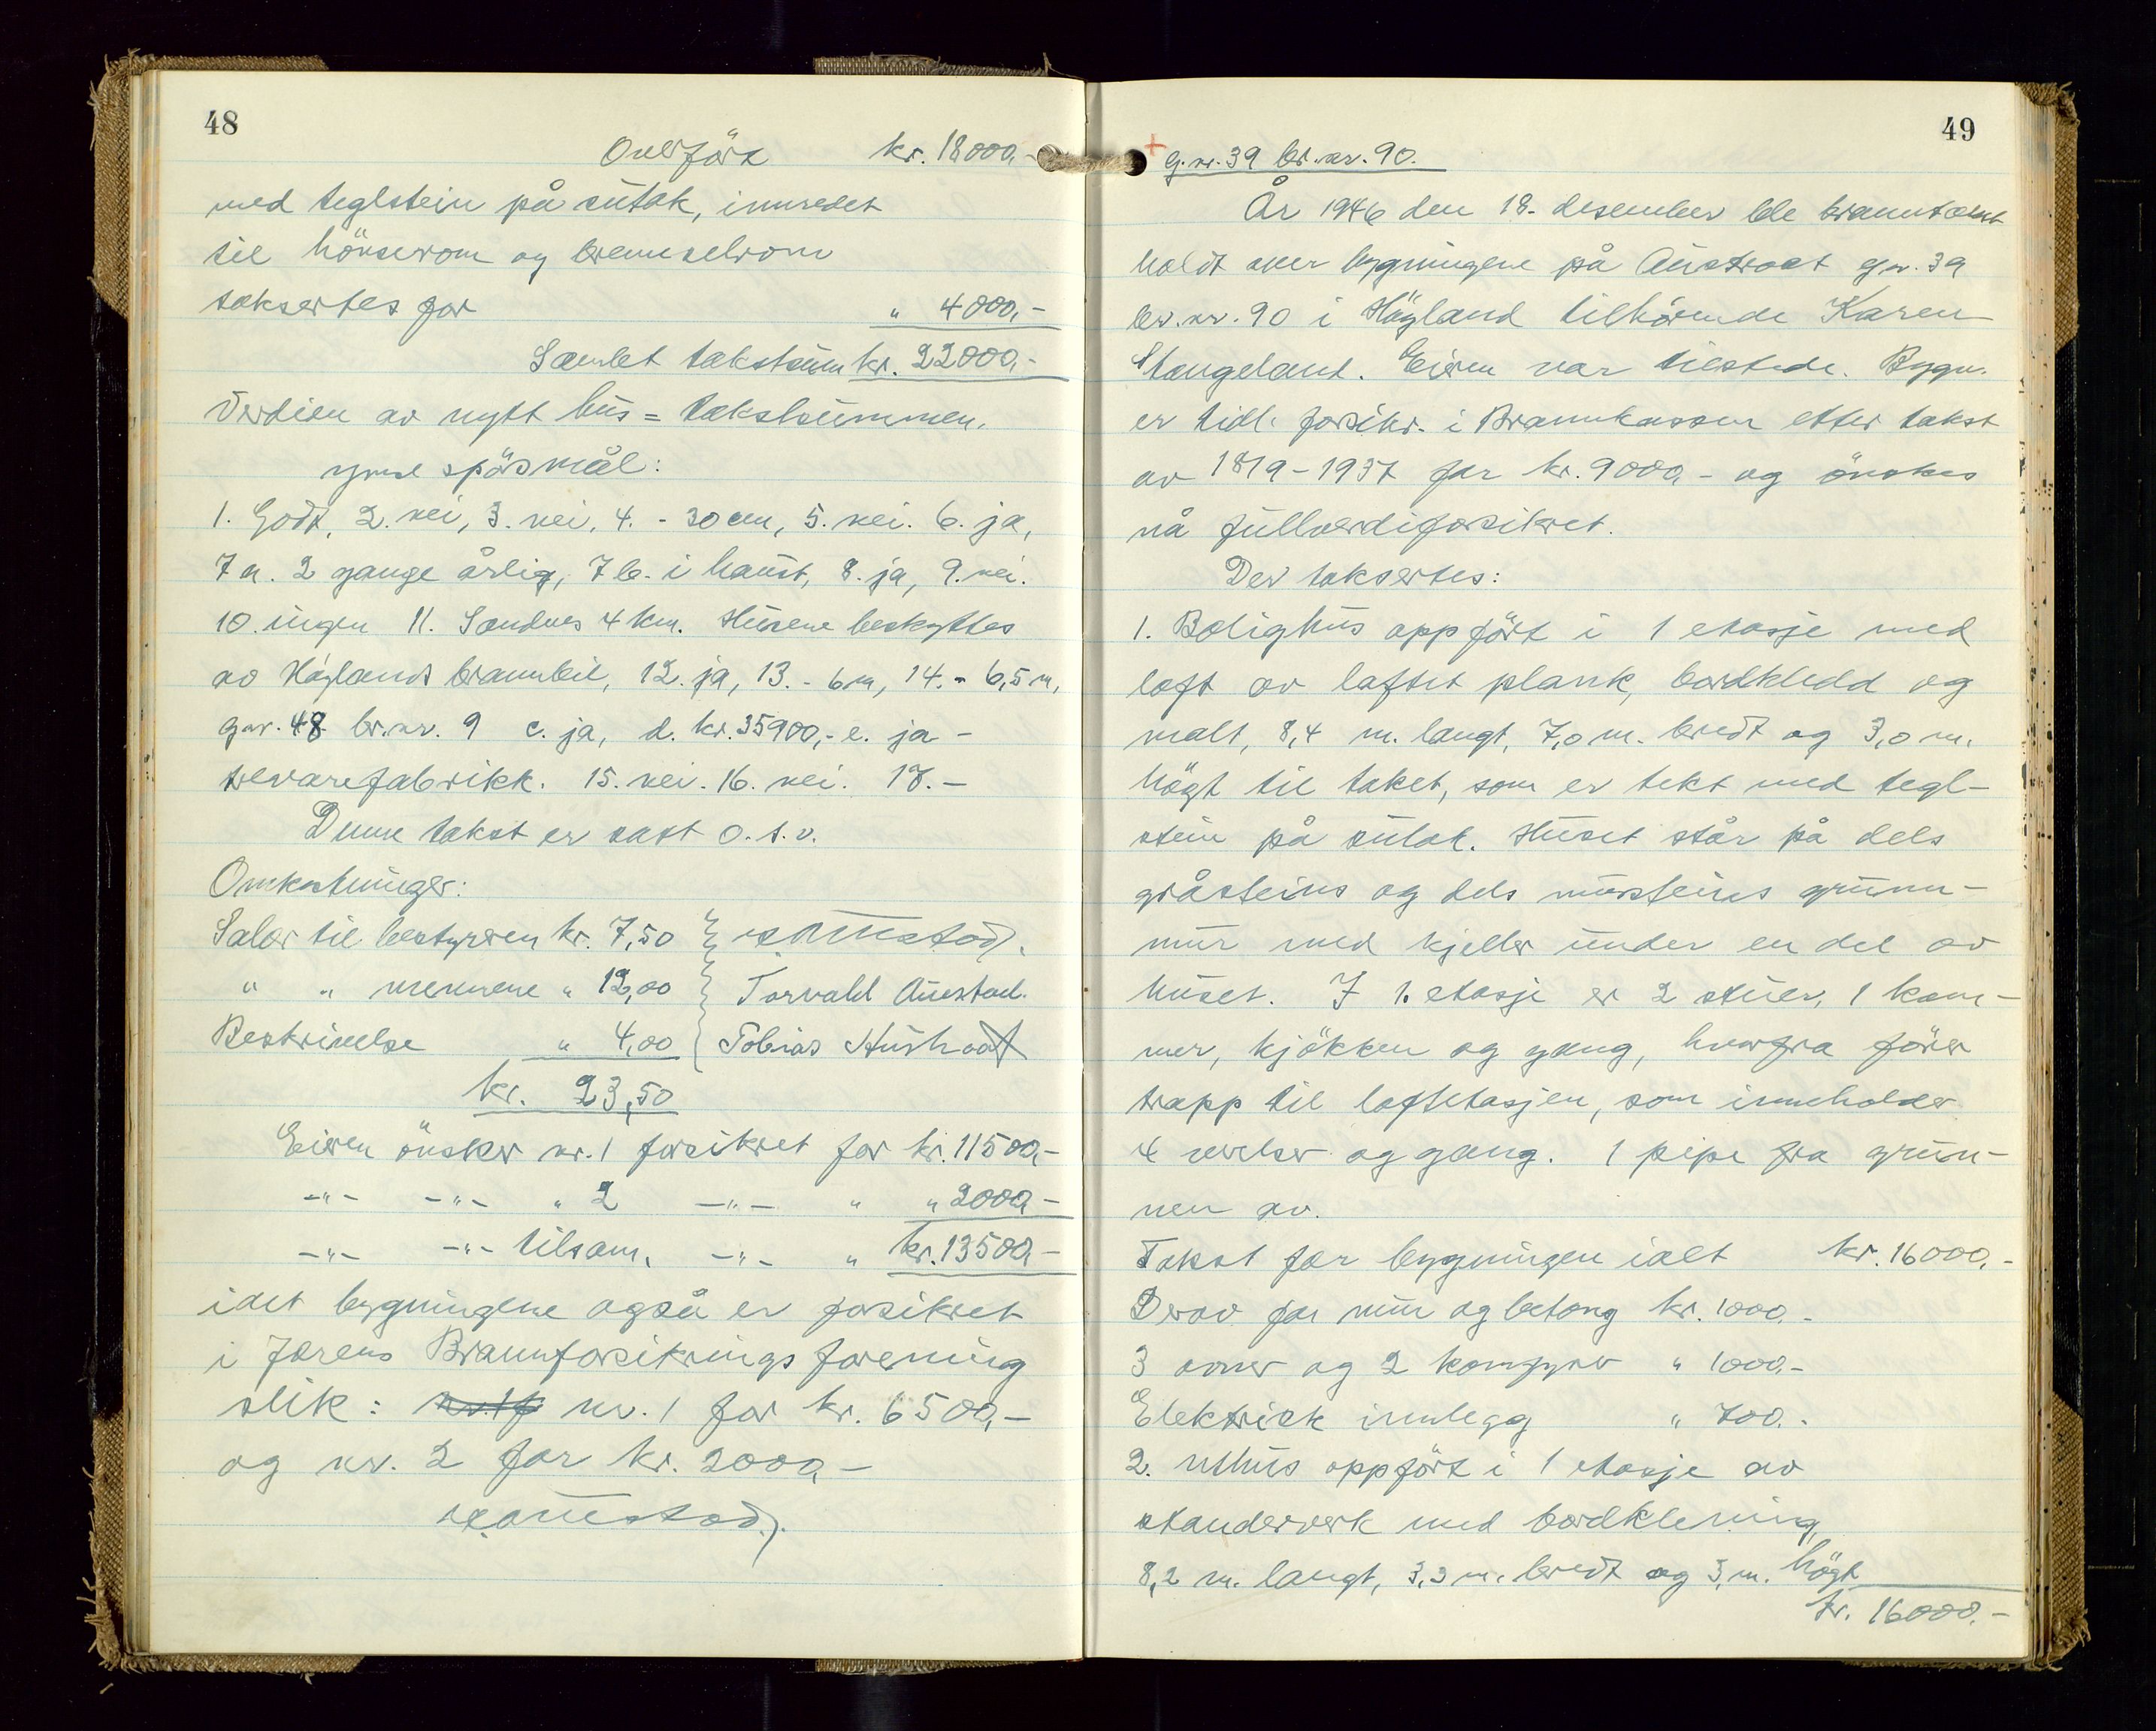 48
Overfört kr. 18000,-
med teglstein på sutak, innredet
til hönserom og brenselrom
taksertes for " 4000,-
Samlet takstsum kr. 22000,-
Verdien av nytt hus = takstsummen.
ymse spörsmål:
1. Godt, 2. nei, 3. nei, 4. - 30 cm, 5. nei. 6. ja,
7 a. 2 gange årlig, 7 b. i haust, 8. ja, 9. nei.
10. ingen 11. Sandnes 4 km. Husene beskyttes
av Höylands brannbil, 12. ja, 13. - 6 m, 14. - 6,5 m,
gnr. 48 br.nr. 9 c. ja, d. kr. 35900,- e. ja -
trevarefabrikk. 15. nei. 16. nei. 17. -
Denne takst er satt o. s. v.
Omkostninger:
Salær til bestyreren kr. 7,50
" " mennene " 12,00 Torvald Austad.
Beskrivelse " 4,00 Tobias
kr. 23,50
Eieren önsker nr. 1 forsikret for kr. 11500,-
-"- -"- " 2 -"- " " 2000,-
-"- -"- tilsam. -"- " kr. 13500,-
idet bygningene også er forsikret
i Jærens Brannforsikringsforening
slik: nr. 1 for kr. 6500,-
og nr. 2 for kr. 2000,-
49
+ g.nr. 39 br.nr. 90.
År 1946 den 18. desember ble branntakst
holdt over bygningene på Austrått gnr. 39
br.nr. 90 i Höyland tilhörende Karen
Stangeland. Eieren var tilstede. Bygn.
er tidl. forsikr. i Brannkassen etter takst
av 18/9-1937 for kr. 9000,- og önskes
nå fullverdiforsikret.
Der taksertes:
1. Bolighus oppfört i 1 etasje med
loft av laftet plank, bordkledd og
malt, 8,4 m. langt, 7,0 m. bredt og 3,0 m.
högt til taket, som er tekt med tegl-
stein på sutak. Huset står på dels
gråsteins og dels mursteins grunn-
mur med kjeller under en del av
huset. I 1. etasje er 2 stuer, 1 kam-
mer, kjökken og gang, hvorfra förer
trapp til loftetasjen, som inneholder
4 verelser og gang. 1 pipe fra grun-
nen av.
Takst for bygningen ialt kr. 16000.-
Derav for mur og betong kr. 1000.-
3 ovner og 2 komfyrer " 1000.-
Elektrisk innlegg " 700.-
2. Uthus oppfört i 1 etasje av
standerverk med bordkledning,
8,2 m. langt, 3,3 m. bredt og 3, m. högt
kr. 16000.-